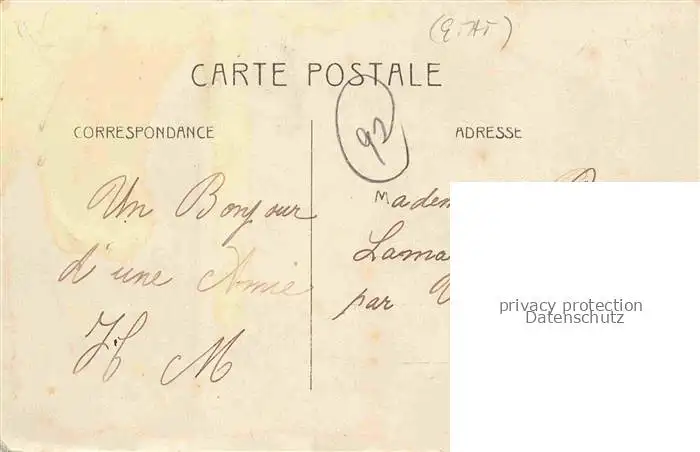 (ETAT)
CARTE POSTALE
CORRESPONDANCE
92
ADRESSE
Un Bonjour
d'une Amie
M
par
privacy protection
Datenschutz